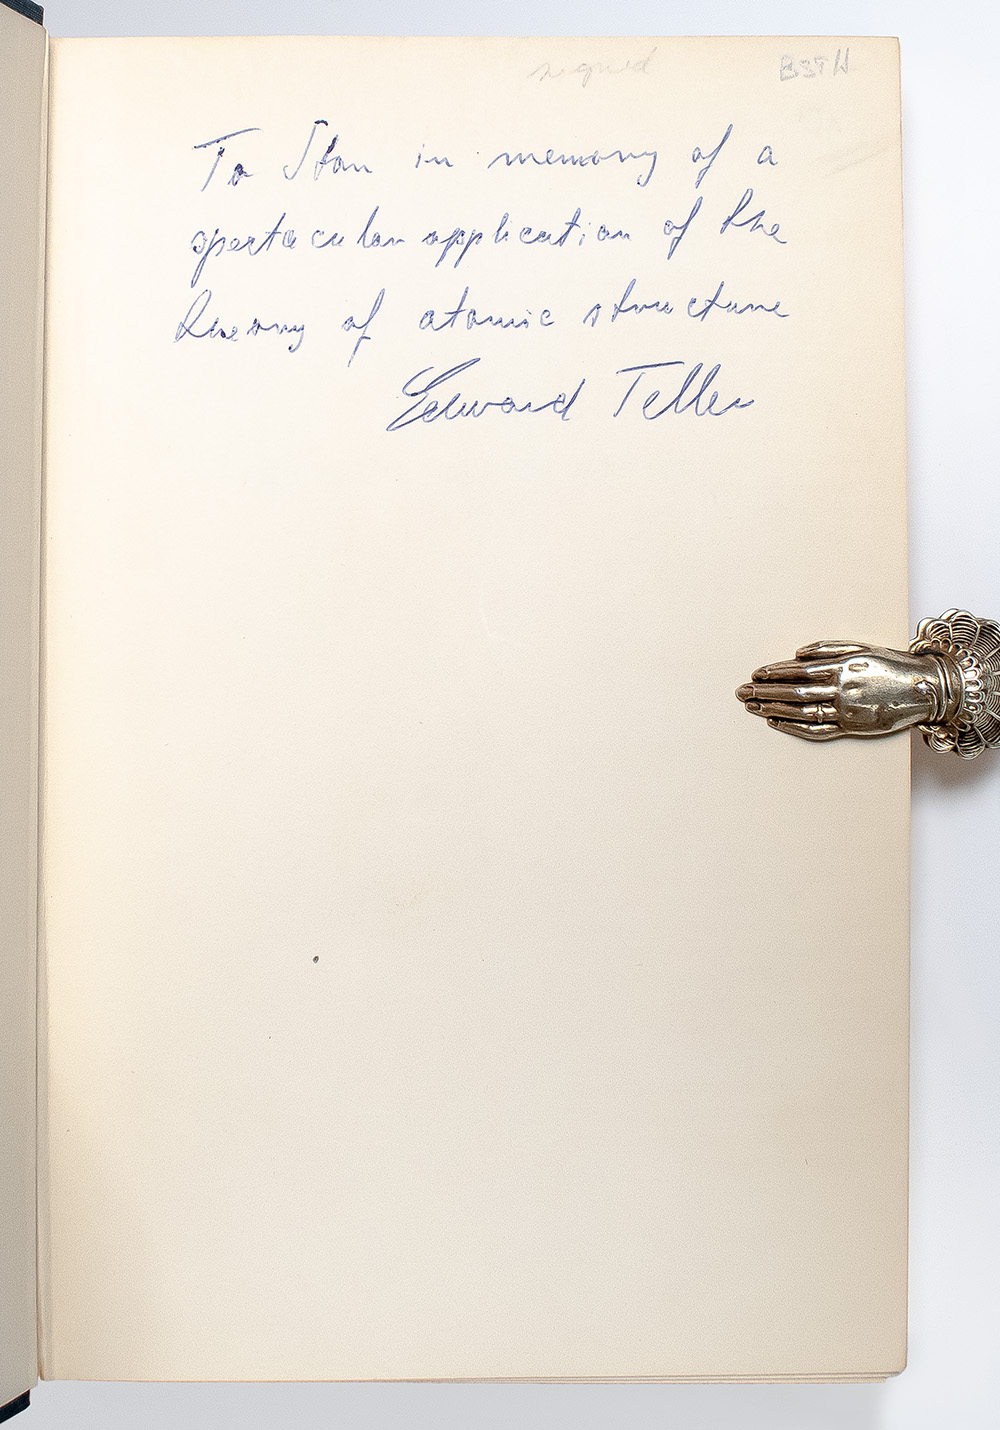 signed
To Stan in memory of a
spectacular application of the
theory of atomic structure
Edward Teller